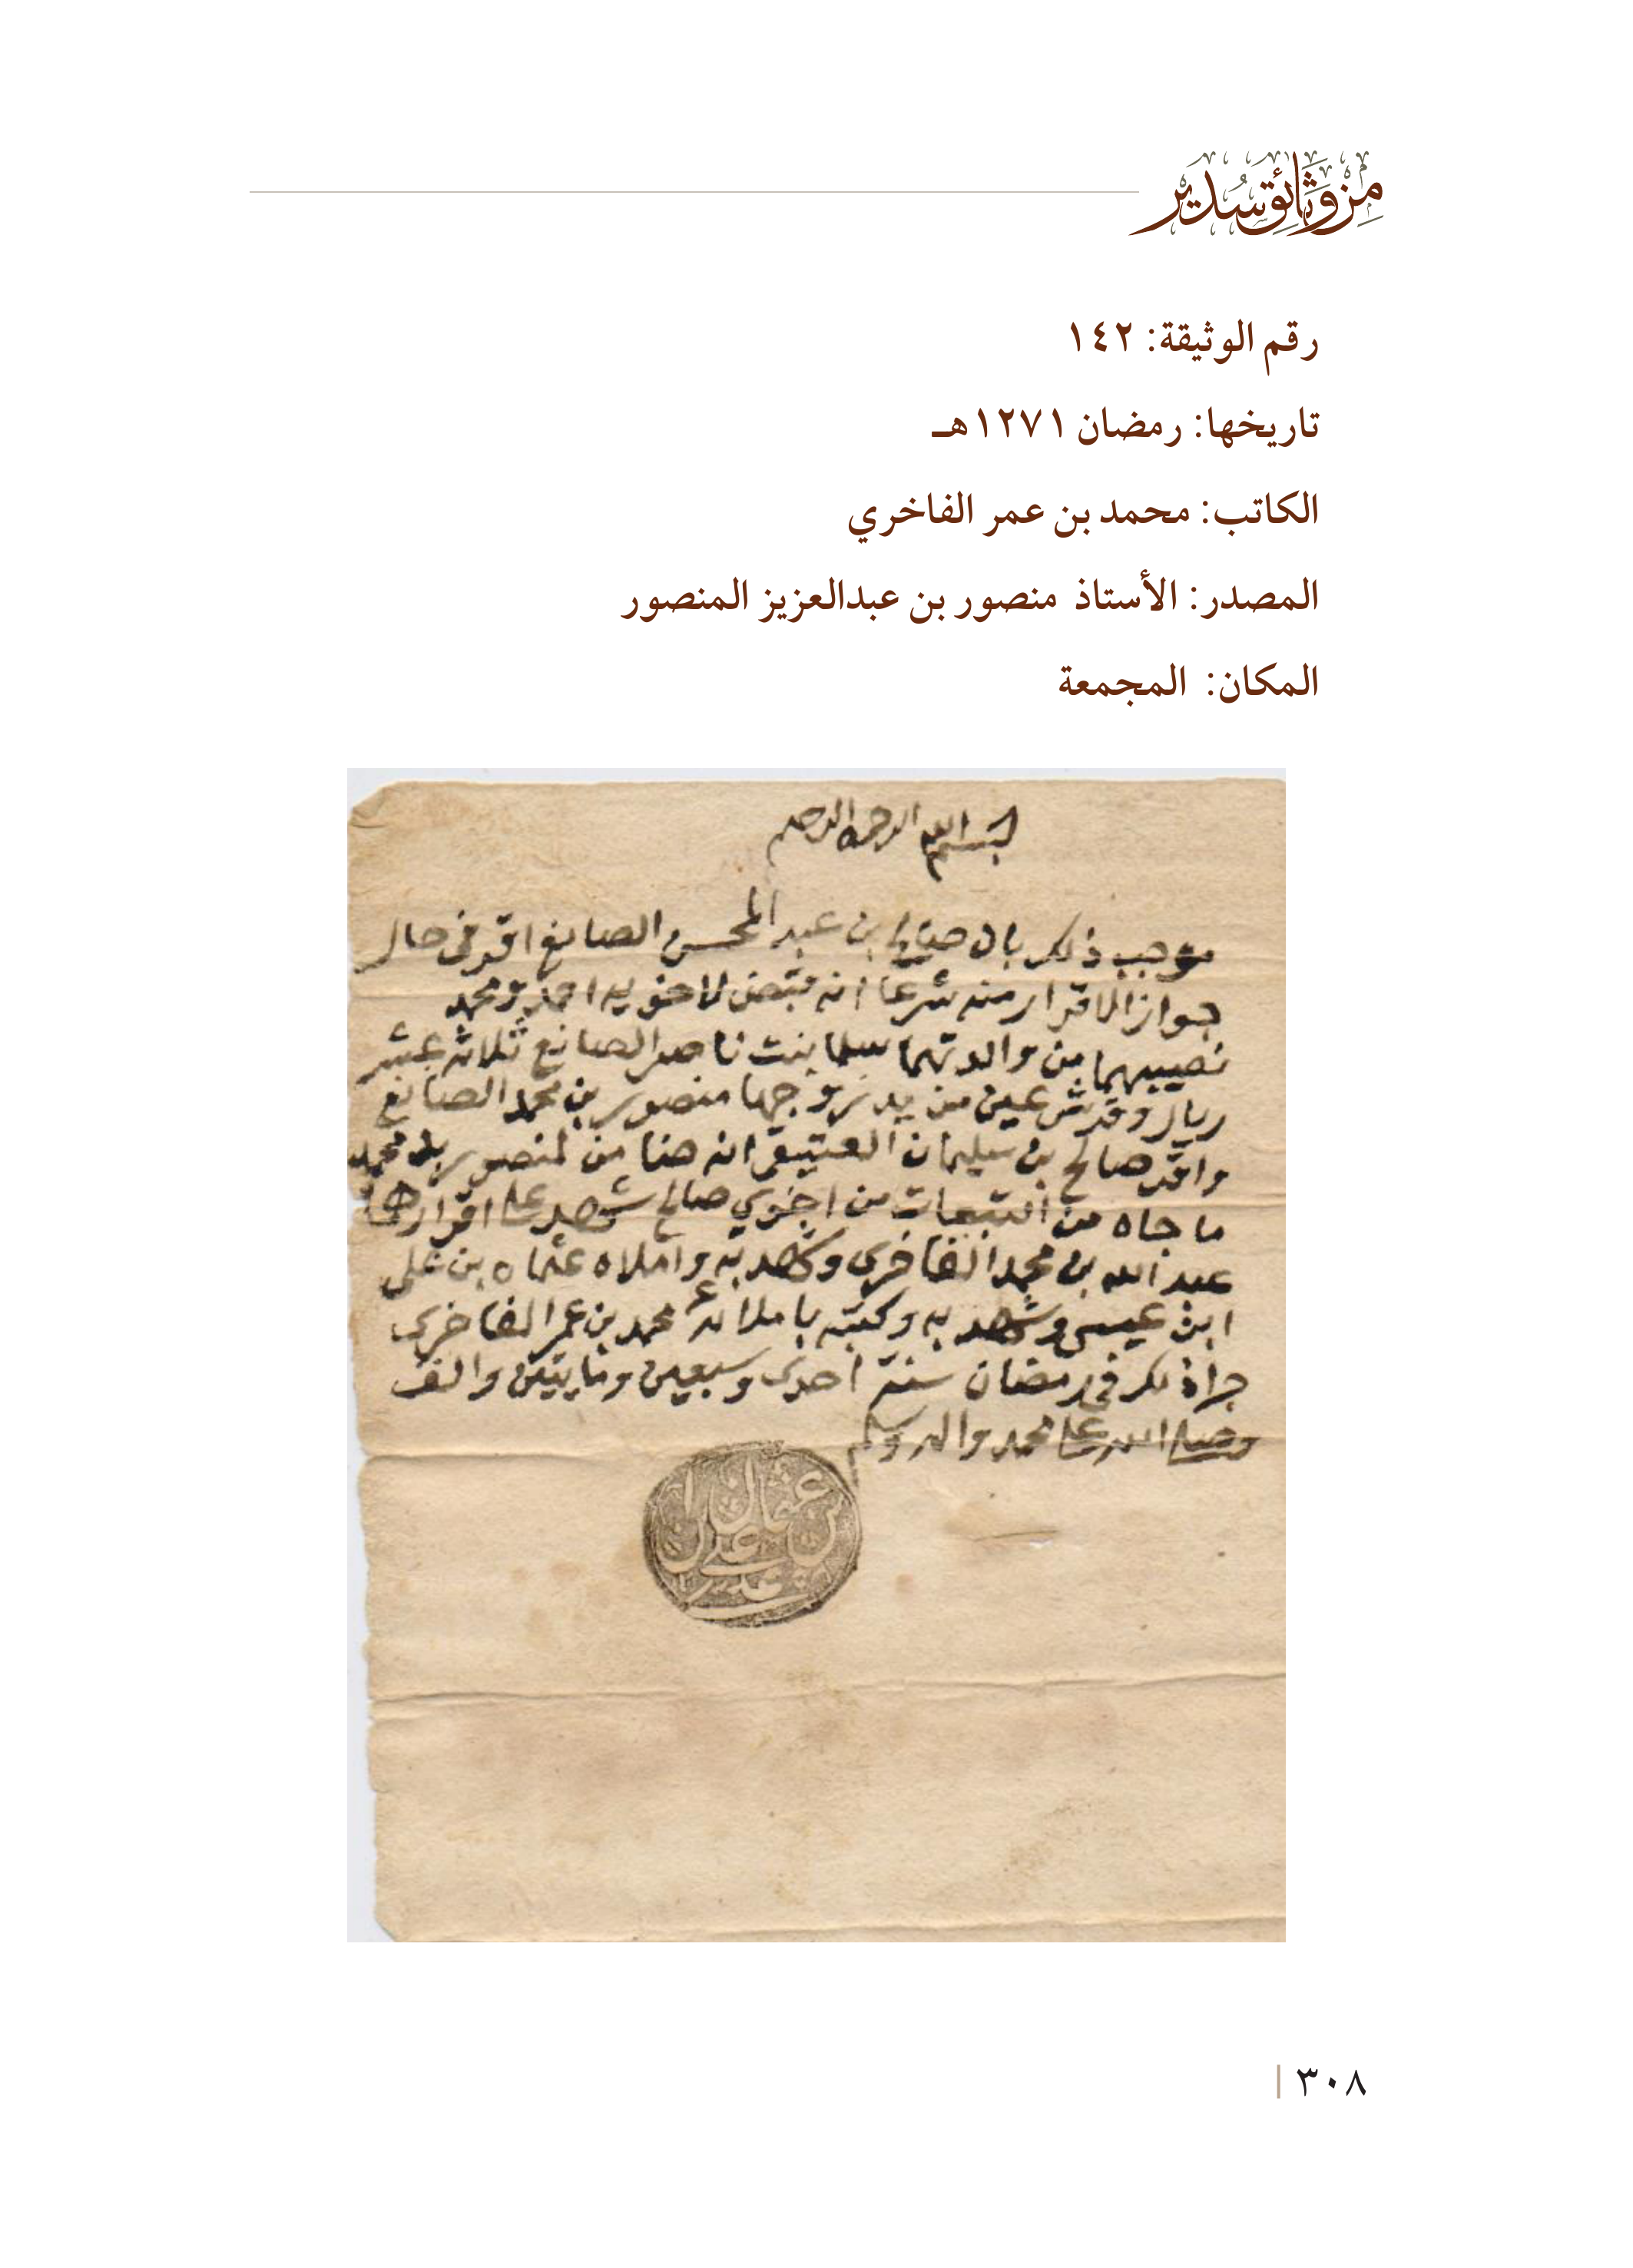 من وثائق سدير
رقم الوثيقة: ١٤٢
تاريخها: رمضان ١٢٧١هـ
الكاتب: محمد بن عمر الفاخري
المصدر: الأستاذ منصور بن عبدالعزيز المنصور
المكان: المجمعة
بسم الله الرحمن الرحيم
موجب ذلكر بان صالح بن عبد المحسن الصايغ اقر في حال
جواز الاقرار منه شرعا انه قبض لاخويه احمد ومحمد
نصيبهما من والدتهما سلما بنت ناصر الصايغ ثلاثة عشر
ريال وقرش عين من يد زوجها منصور بن محمد الصايغ
واقر صالح بن سليمان العتيقي انه ضنا من لمنصور بن محمد
ما جاه من التبعات من اخوي صالح شهد على اقرارهما
عبد الله بن محمد الفاخري وشهد به واملاه عثمان بن علي
ابن عيسى وشهد به وكتبه باملائه محمد بن عمر الفاخري
جرا ذلكر في رمضان سنة احدى وسبعين ومايتين والف
وصلى الله على محمد واله وسلم
عثمان بن علي
٣٠٨